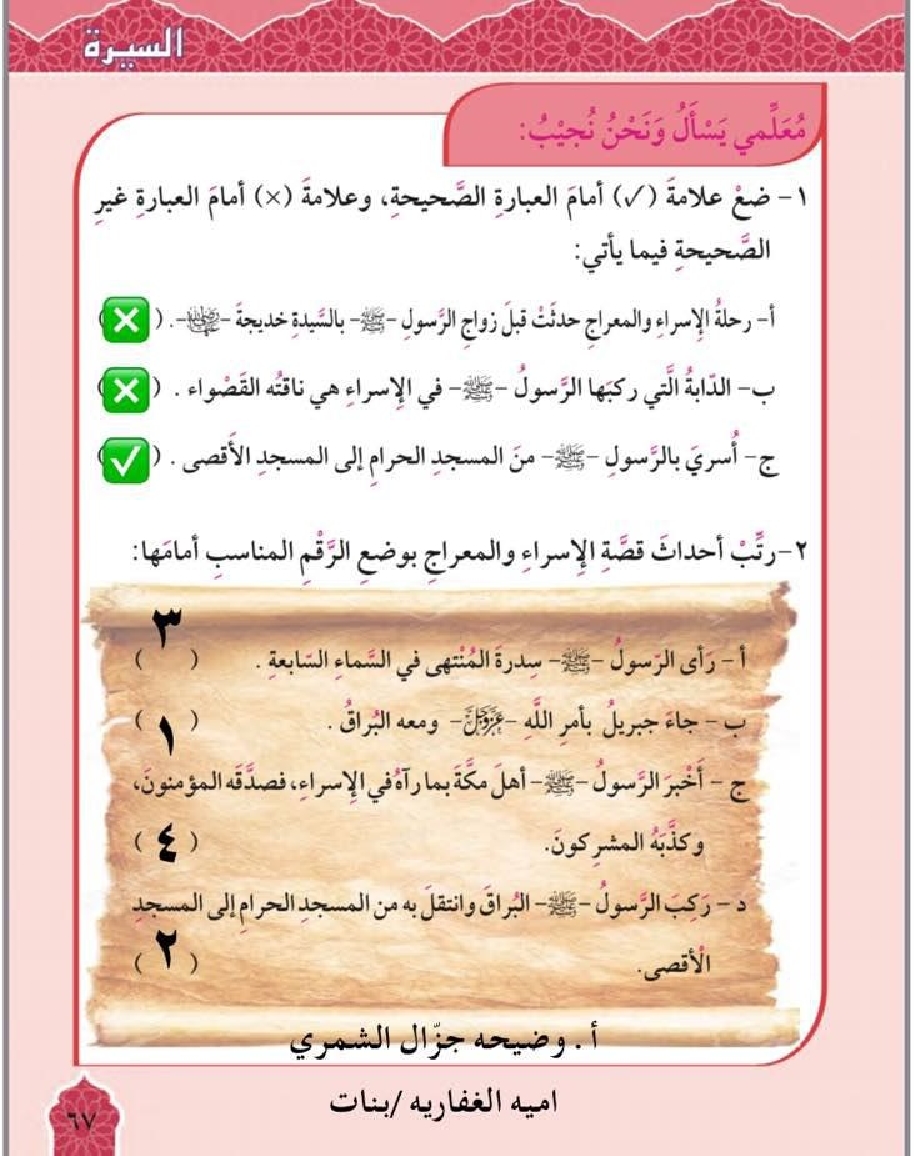 السيرة
مُعَلِّمي يَسْأَلُ وَنَحْنُ نُجيْبُ:
١- ضعْ علامةَ (✓) أمامَ العبارةِ الصَّحيحةِ، وعلامةَ (×) أمامَ العبارةِ غيرِ
الصَّحيحةِ فيما يأتي:
أ- رحلةُ الإسراءِ والمعراجِ حدثَتْ قبلَ زواجِ الرَّسولِ -ﷺ- بالسَّيدةِ خديجةَ -رضي الله عنها-. (❎)
ب- الدّابةُ الَّتي ركبَها الرَّسولُ -ﷺ- في الإسراءِ هي ناقتُه القَصْواء . (❎)
ج- أُسريَ بالرَّسولِ -ﷺ- منَ المسجدِ الحرامِ إلى المسجدِ الأقصى . (✅)
٢-رتِّبْ أحداثَ قصَّةِ الإسراءِ والمعراجِ بوضعِ الرَّقْمِ المناسبِ أمامَها:
أ - رَأى الرّسولُ -ﷺ- سِدرةَ المُنْتهى في السَّماءِ السّابعةِ . (٣)
ب - جاءَ جبريلُ بأمرِ اللَّهِ -عَزَّوَجَلَّ- ومعه البُراقُ . (١)
ج - أَخْبرَ الرَّسولُ -ﷺ- أهلَ مكَّةَ بما رآهُ في الإسراءِ، فصدَّقَه المؤمنونَ،
وكذَّبَهُ المشركونَ. (٤)
د - رَكِبَ الرَّسولُ -ﷺ- البُراقَ وانتقلَ به من المسجدِ الحرامِ إلى المسجدِ
الْأقصى. (٢)
أ . وضيحه جزّال الشمري
اميه الغفاريه /بنات
٦٧